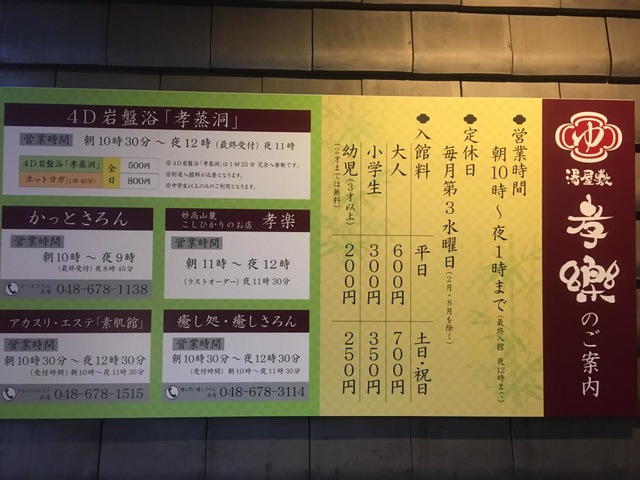 ゆ
湯屋敷
孝樂のご案内
営業時間
朝10時～夜1時まで(最終入館 夜12時まで)
定休日
毎月第3水曜日(2月・8月を除く)
入館料 平日 土日・祝日
大人 600円 700円
小学生 300円 350円
幼児(3才以上) 200円 250円
(2才までは無料)
4D岩盤浴「孝蒸洞」
営業時間 朝10時30分～夜12時(最終受付)夜11時
4D岩盤浴「孝蒸洞」 全日 500円
ホットヨガ(1回40分) 800円
※4D岩盤浴「孝蒸洞」は1回25分 完全入替制です。
※別途入館料が必要となります。
※中学生以上のみのご利用となります。
かっとさろん
営業時間
朝10時～夜9時
(最終受付)夜8時45分
かっとさろん直通 048-678-1138
妙高山麓
こしひかりのお店 孝楽
営業時間
朝11時～夜12時
(ラストオーダー)夜11時30分
アカスリ・エステ「素肌館」
営業時間
朝10時30分～夜12時30分
(受付時間)朝10時～夜11時30分
直通 048-678-1515
癒し処・癒しさろん
営業時間
朝10時30分～夜12時30分
(受付時間)朝10時～夜11時30分
癒し処・癒しさろん直通 048-678-3114